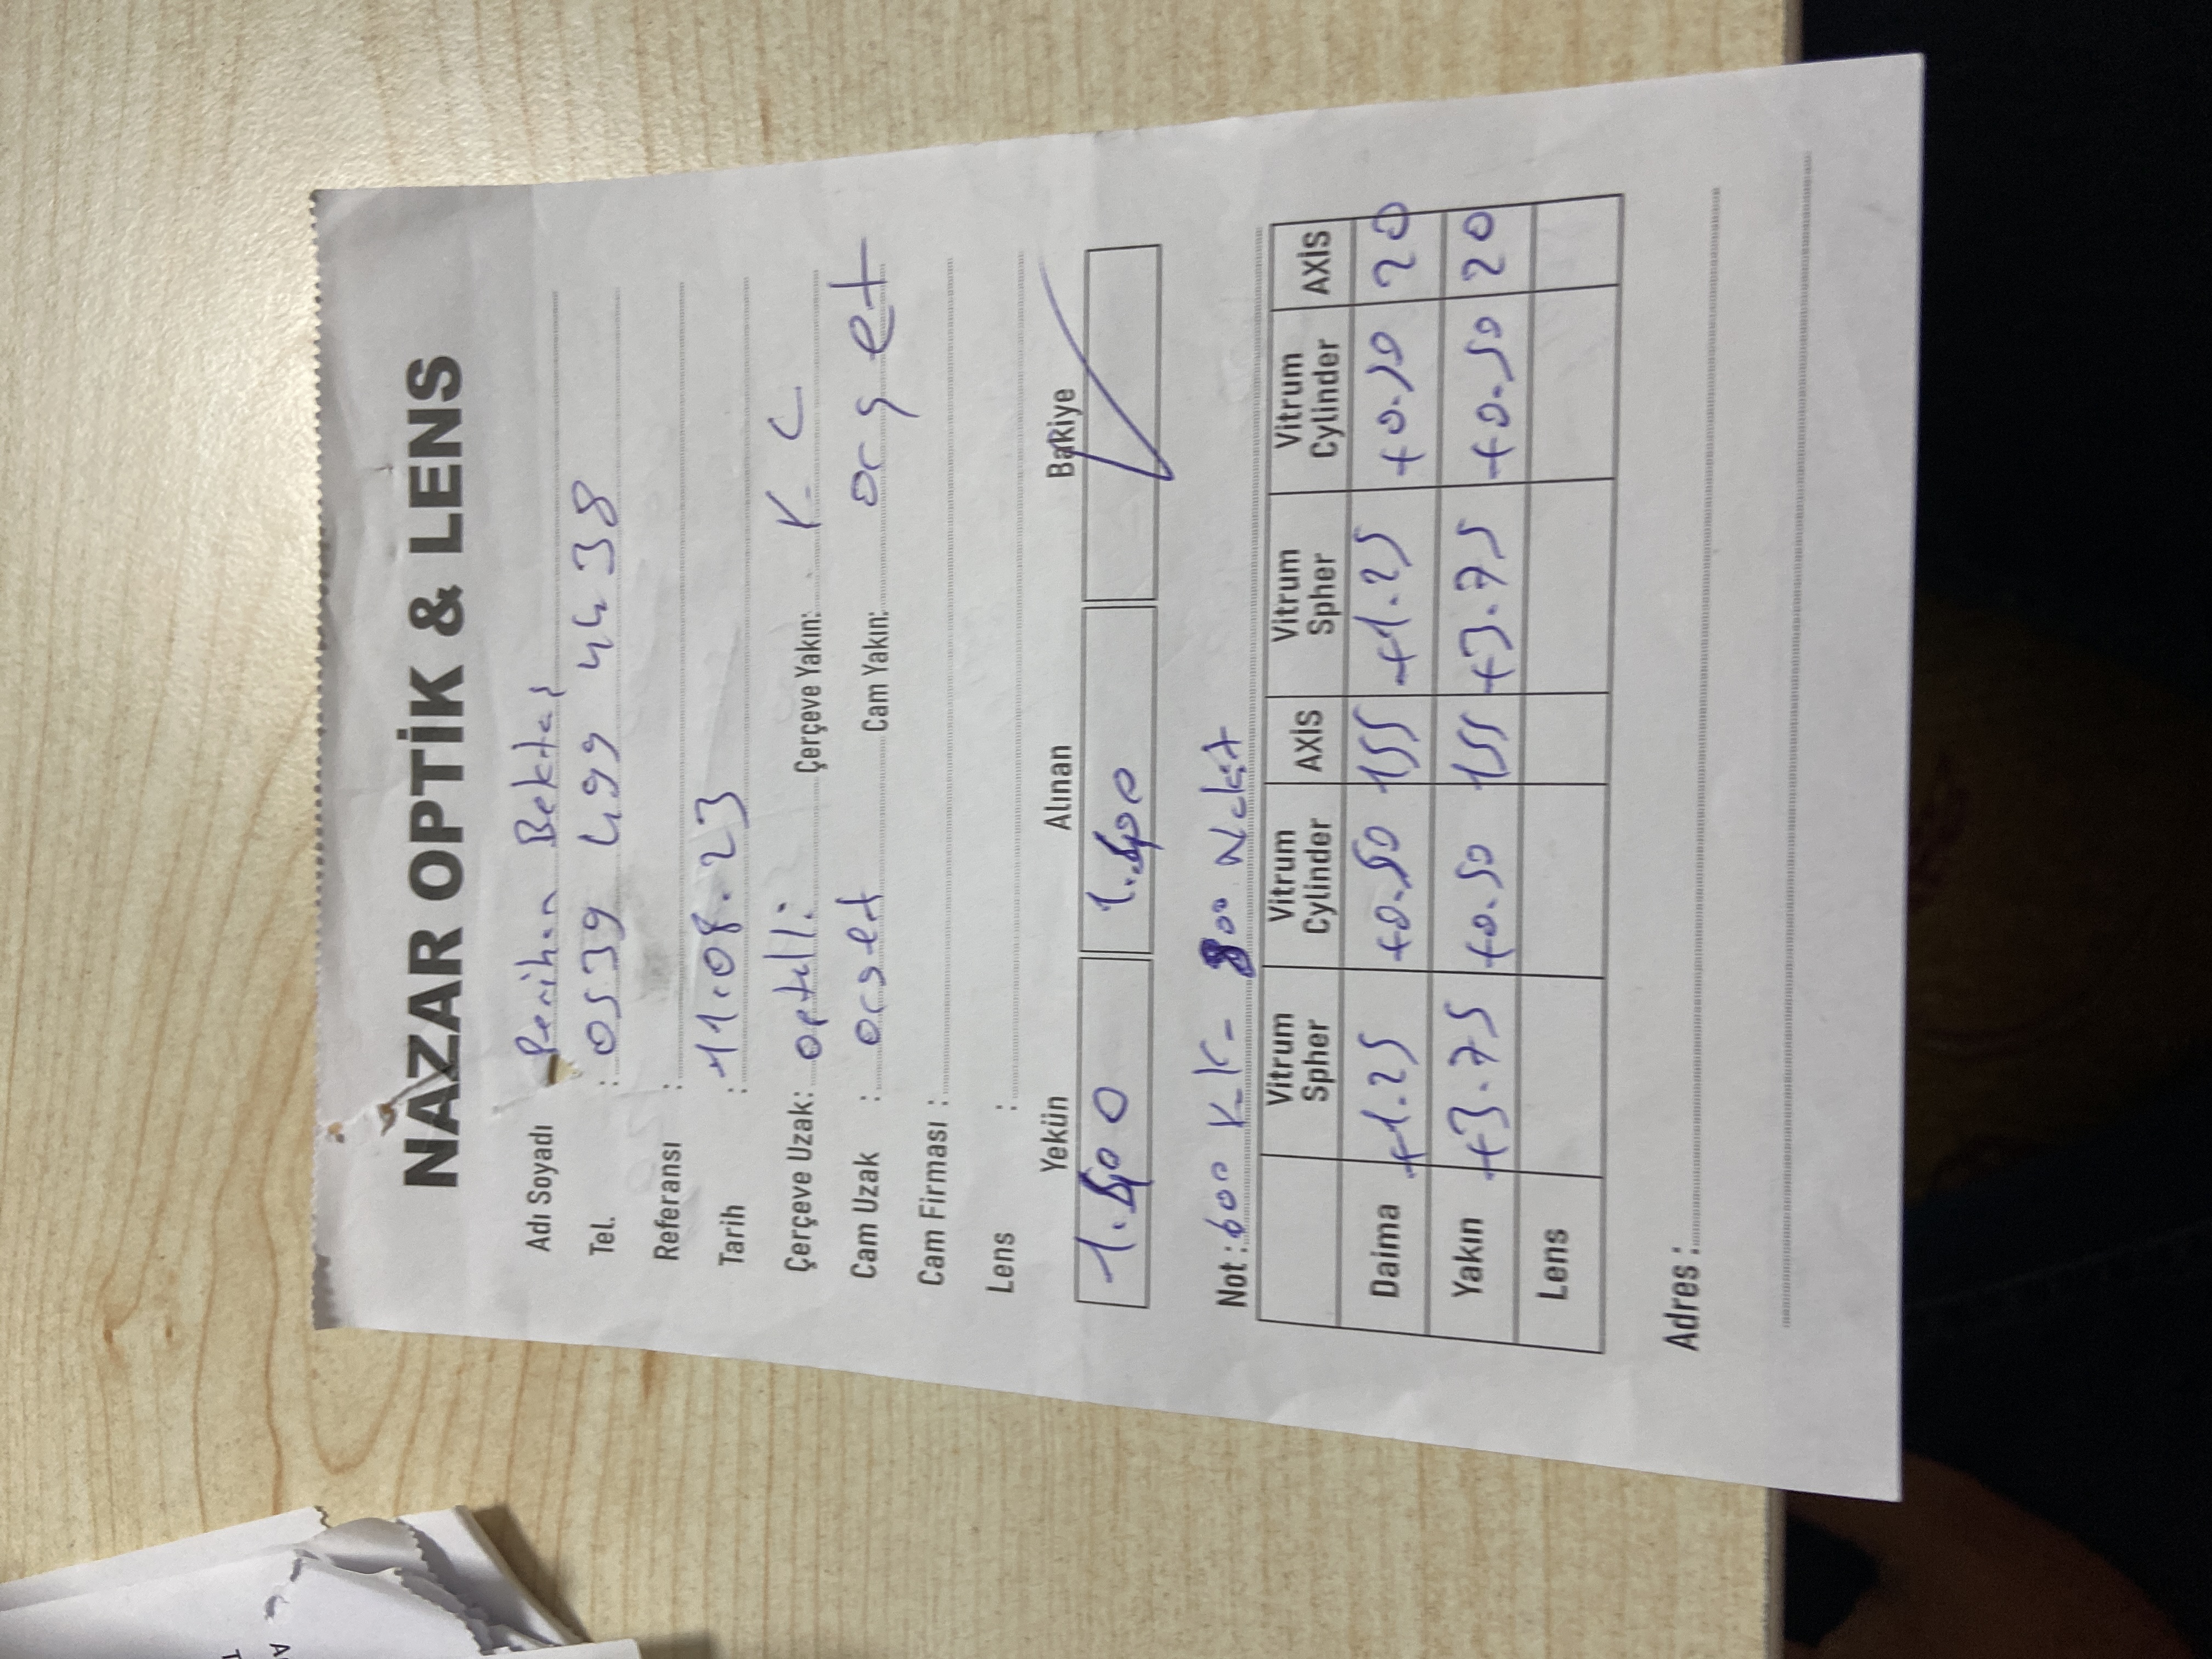 NAZAR OPTİK & LENS
Adı Soyadı Perihan Bektaş
Tel. : 0539 499 44 38
Referansı :
Tarih : 11.08.23
Çerçeve Uzak: optelli Çerçeve Yakın: K C
Cam Uzak : orget Cam Yakın: org et
Cam Firması :
Lens :
Yekün Alınan Bakiye
1.400 1.400
Not : 600 K.K - 800 Nakit
Vitrum Spher Vitrum Cylinder AXİS Vitrum Spher Vitrum Cylinder AXİS
Daima +1.25 +0.50 155 +1.25 +0.50 20
Yakın +3.75 +0.50 155 +3.75 +0.50 20
Lens
Adres :